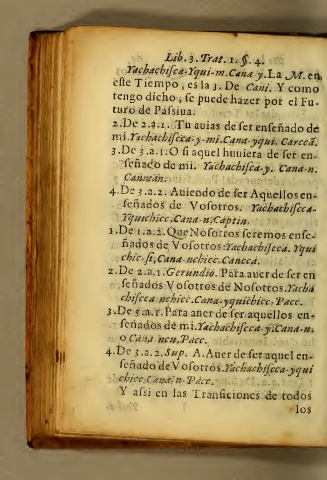 Lib. 3. Trat. 1. §. 4.
Yachachiſca-Yqui-m. Cana y. La M. en
eſte Tiempo, es la 3. De Cani. Y como
tengo dicho, ſe puede hazer por el Fu-
turo de Paſsiua.
2. De 2.a.1. Tu auias de ſer enſeñado de
mi. Yachachiſcca-y-mi. Cana-yqui. Carcca.
3. De 3.a.1. O ſi aquel huuiera de ſer en-
ſeñado de mi. Yachachiſca-y. Cana-n.
Canman.
4. De 3.a.2. Auiendo de ſer Aquellos en-
ſeñados de Voſotros. Yachachiſcca-
Yquichicc. Cana-n. Captin.
1. De 1.a.2. Que Noſotros ſeremos enſe-
ñados de Voſotros: Yachachiſcca. Yqui
chic-ſi, Cana-nchicc. Cancca.
2. De 2.a.1. Gerundio. Para auer de ſer en
ſeñados Voſotros de Noſotros. Yacha
chiſcca-nchicc. Cana-yquichicc. Pacc.
3. De 3.a.1. Para auer de ſer aquellos en-
ſeñados de mi. Yachachiſcca-y. Cana-n.
o Cana-ncu. Pacc.
4. De 3.a.2. Sup. A. Auer de ſer aquel en-
ſeñado de Voſotros. Yachachiſcca-yqui
chicc. Cana-n. Pacc.
Y aſsi en las Tranſiciones de todos
los